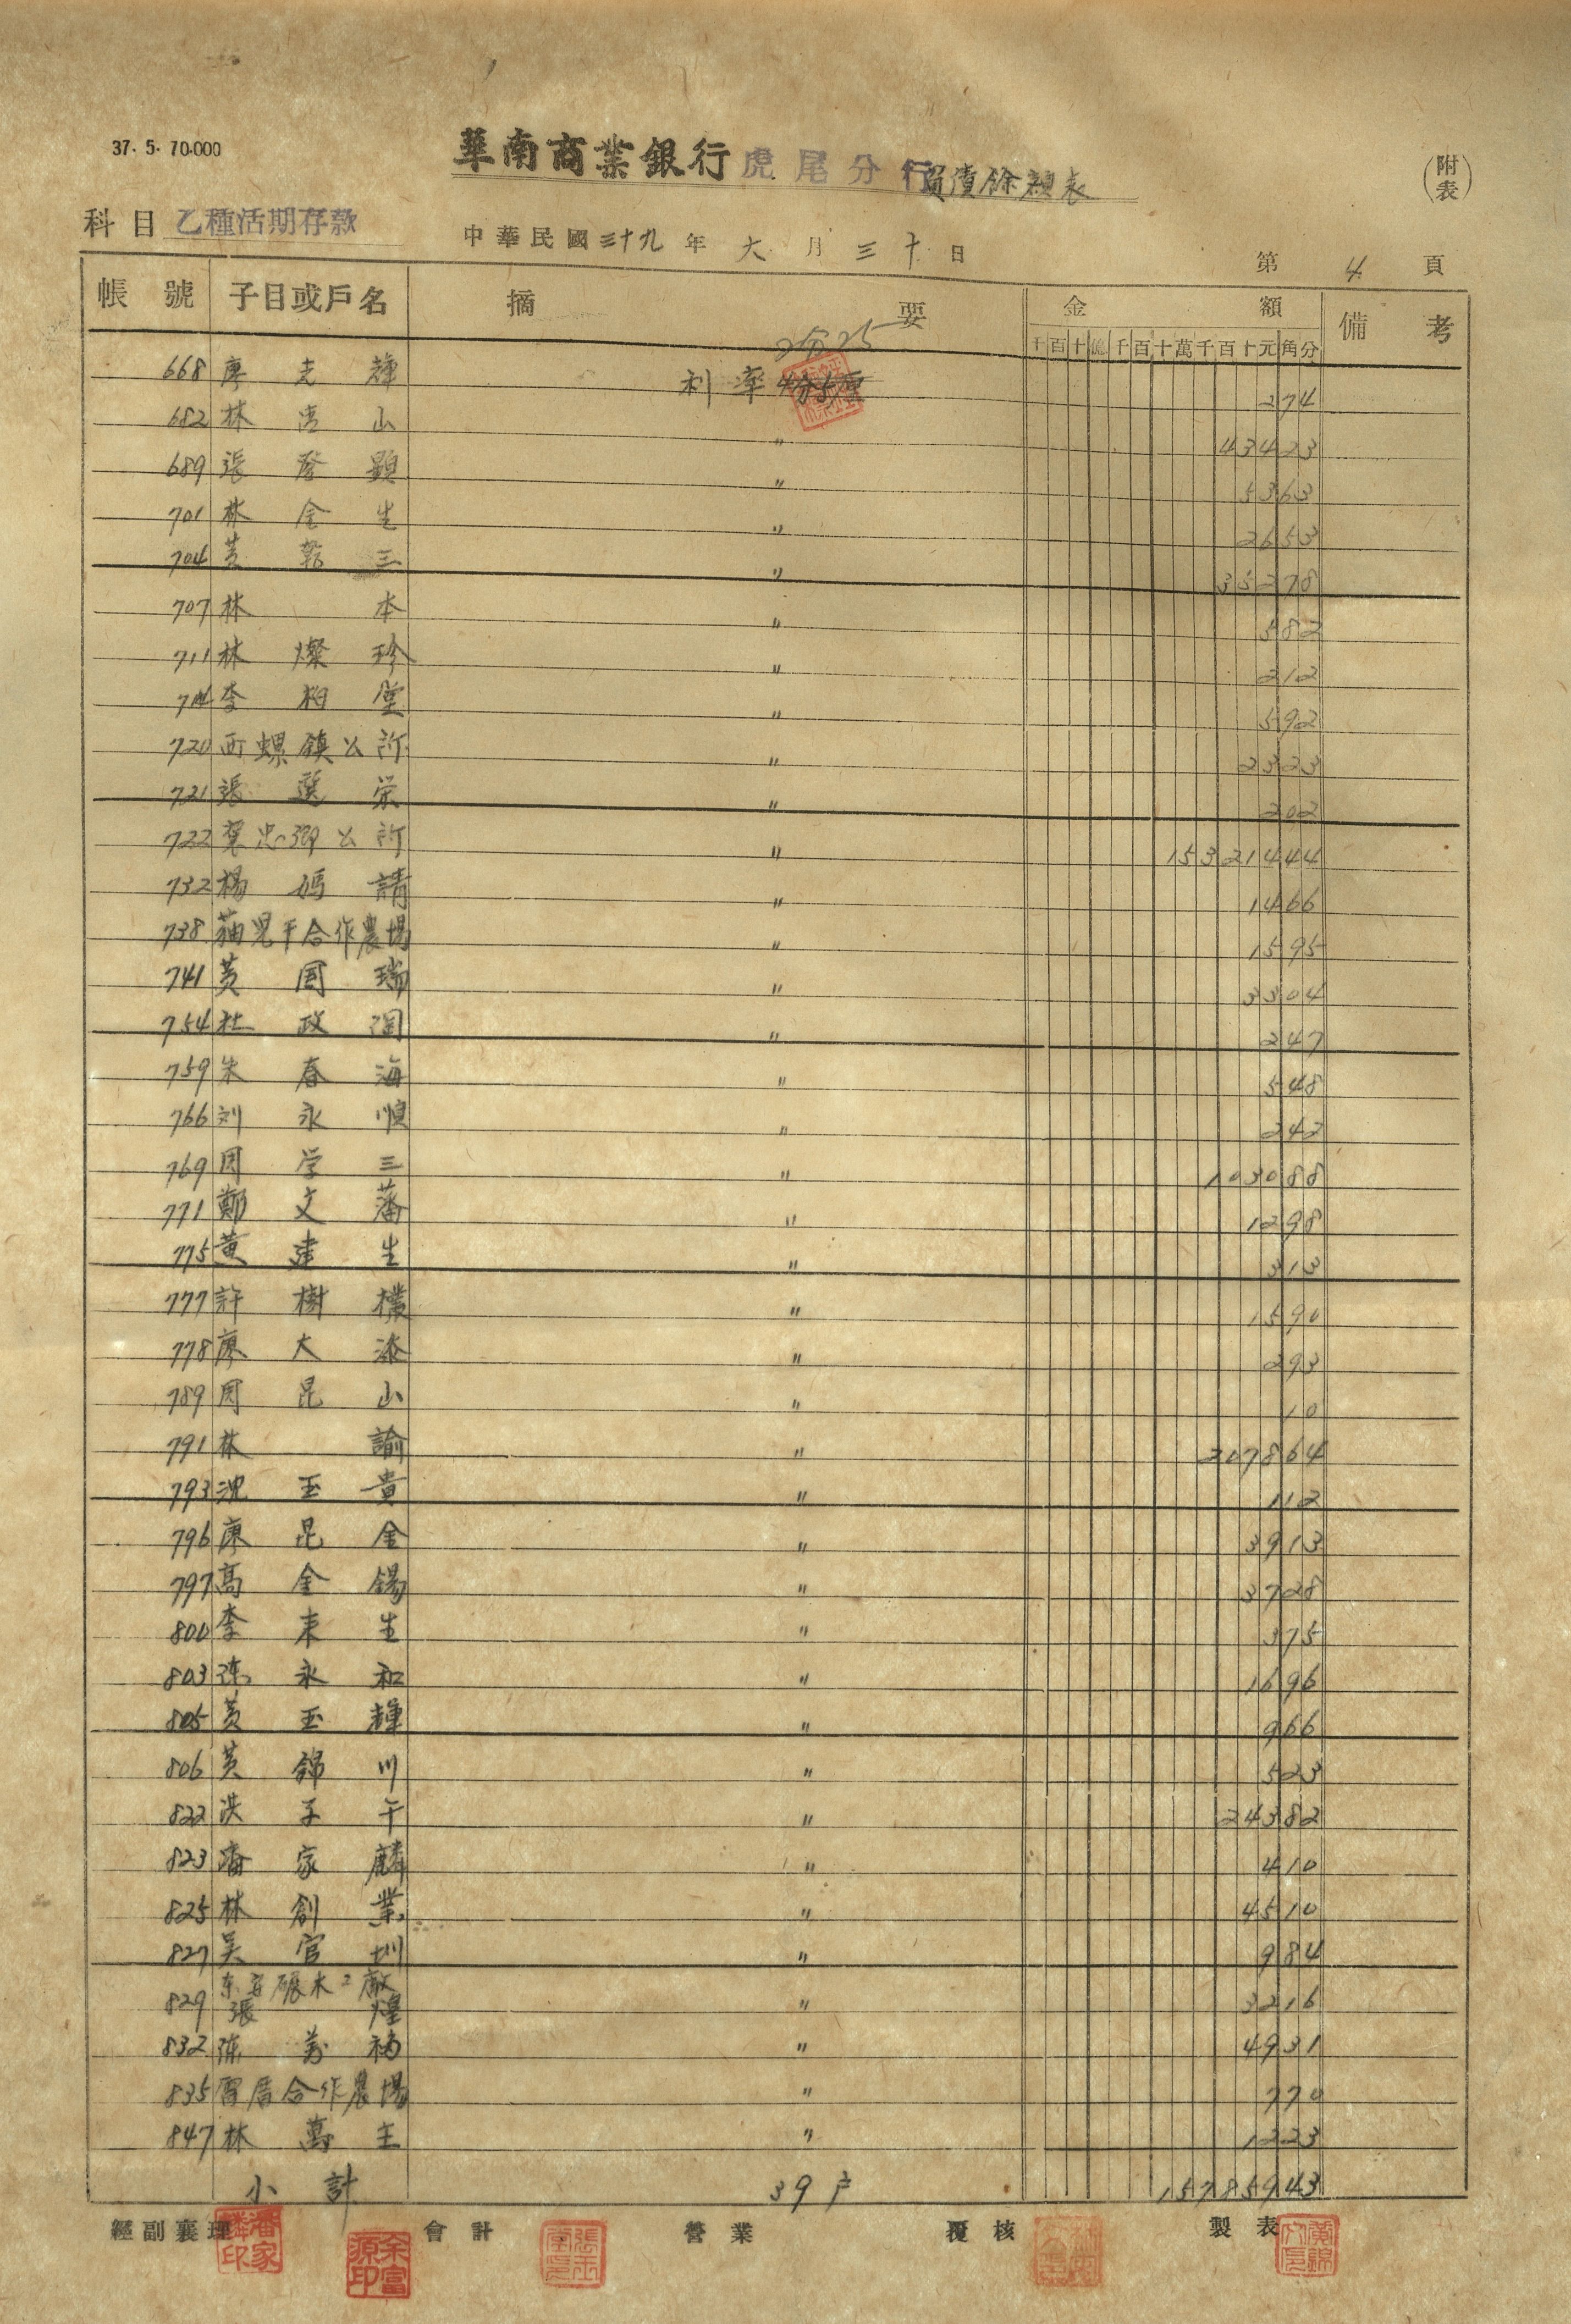 37. 5. 70.000
華南商業銀行虎尾分行負債餘額表
(附表)
科目 乙種活期存款
中華民國三十九年六月三十日
第 4 頁
帳號 子目或戶名 摘要 金額 備考
千百十億千百十萬千百十元角分
2分25
668 廖 輝 利率 4分5厘 274
682 林 山 〃 43423
689 張登顕 〃 5363
701 林金生 〃 2653
704 黃乾三 〃 35278
707 林本 〃 582
711 林燦珍 〃 212
714 李柏堂 〃 592
720 西螺鎮公所 〃 2323
721 張選栄 〃 202
722 褒忠鄉公所 〃 15321444
732 楊媽請 〃 1466
738 莿 合作農場 〃 1595
741 黃国瑞 〃 3304
754 杜政 〃 247
759 朱春海 〃 548
766 刘永順 〃 242
769 周学三 〃 103088
771 鄭文藩 〃 1298
775 黃建生 〃 313
777 許樹樸 〃 1590
778 廖大漆 〃 293
789 周昆山 〃 10
791 林諭 〃 207864
793 沈玉貴 〃 112
796 廖昆金 〃 3913
797 高金錫 〃 3728
800 李来生 〃 375
803 陈永和 〃 1696
805 黃玉輝 〃 966
806 黃錦川 〃 523
822 洪子干 〃 24382
823 潘家麟 〃 410
825 林創業 〃 4510
827 吴官圳 〃 984
东 碾米工廠
829 張煌 〃 3216
832 陈萬福 〃 4931
835 合作農場 〃 770
847 林萬主 〃 1223
小計 39戶 15785943
經副襄理 會計 營業 覆核 製表
潘家麟印
余富源印